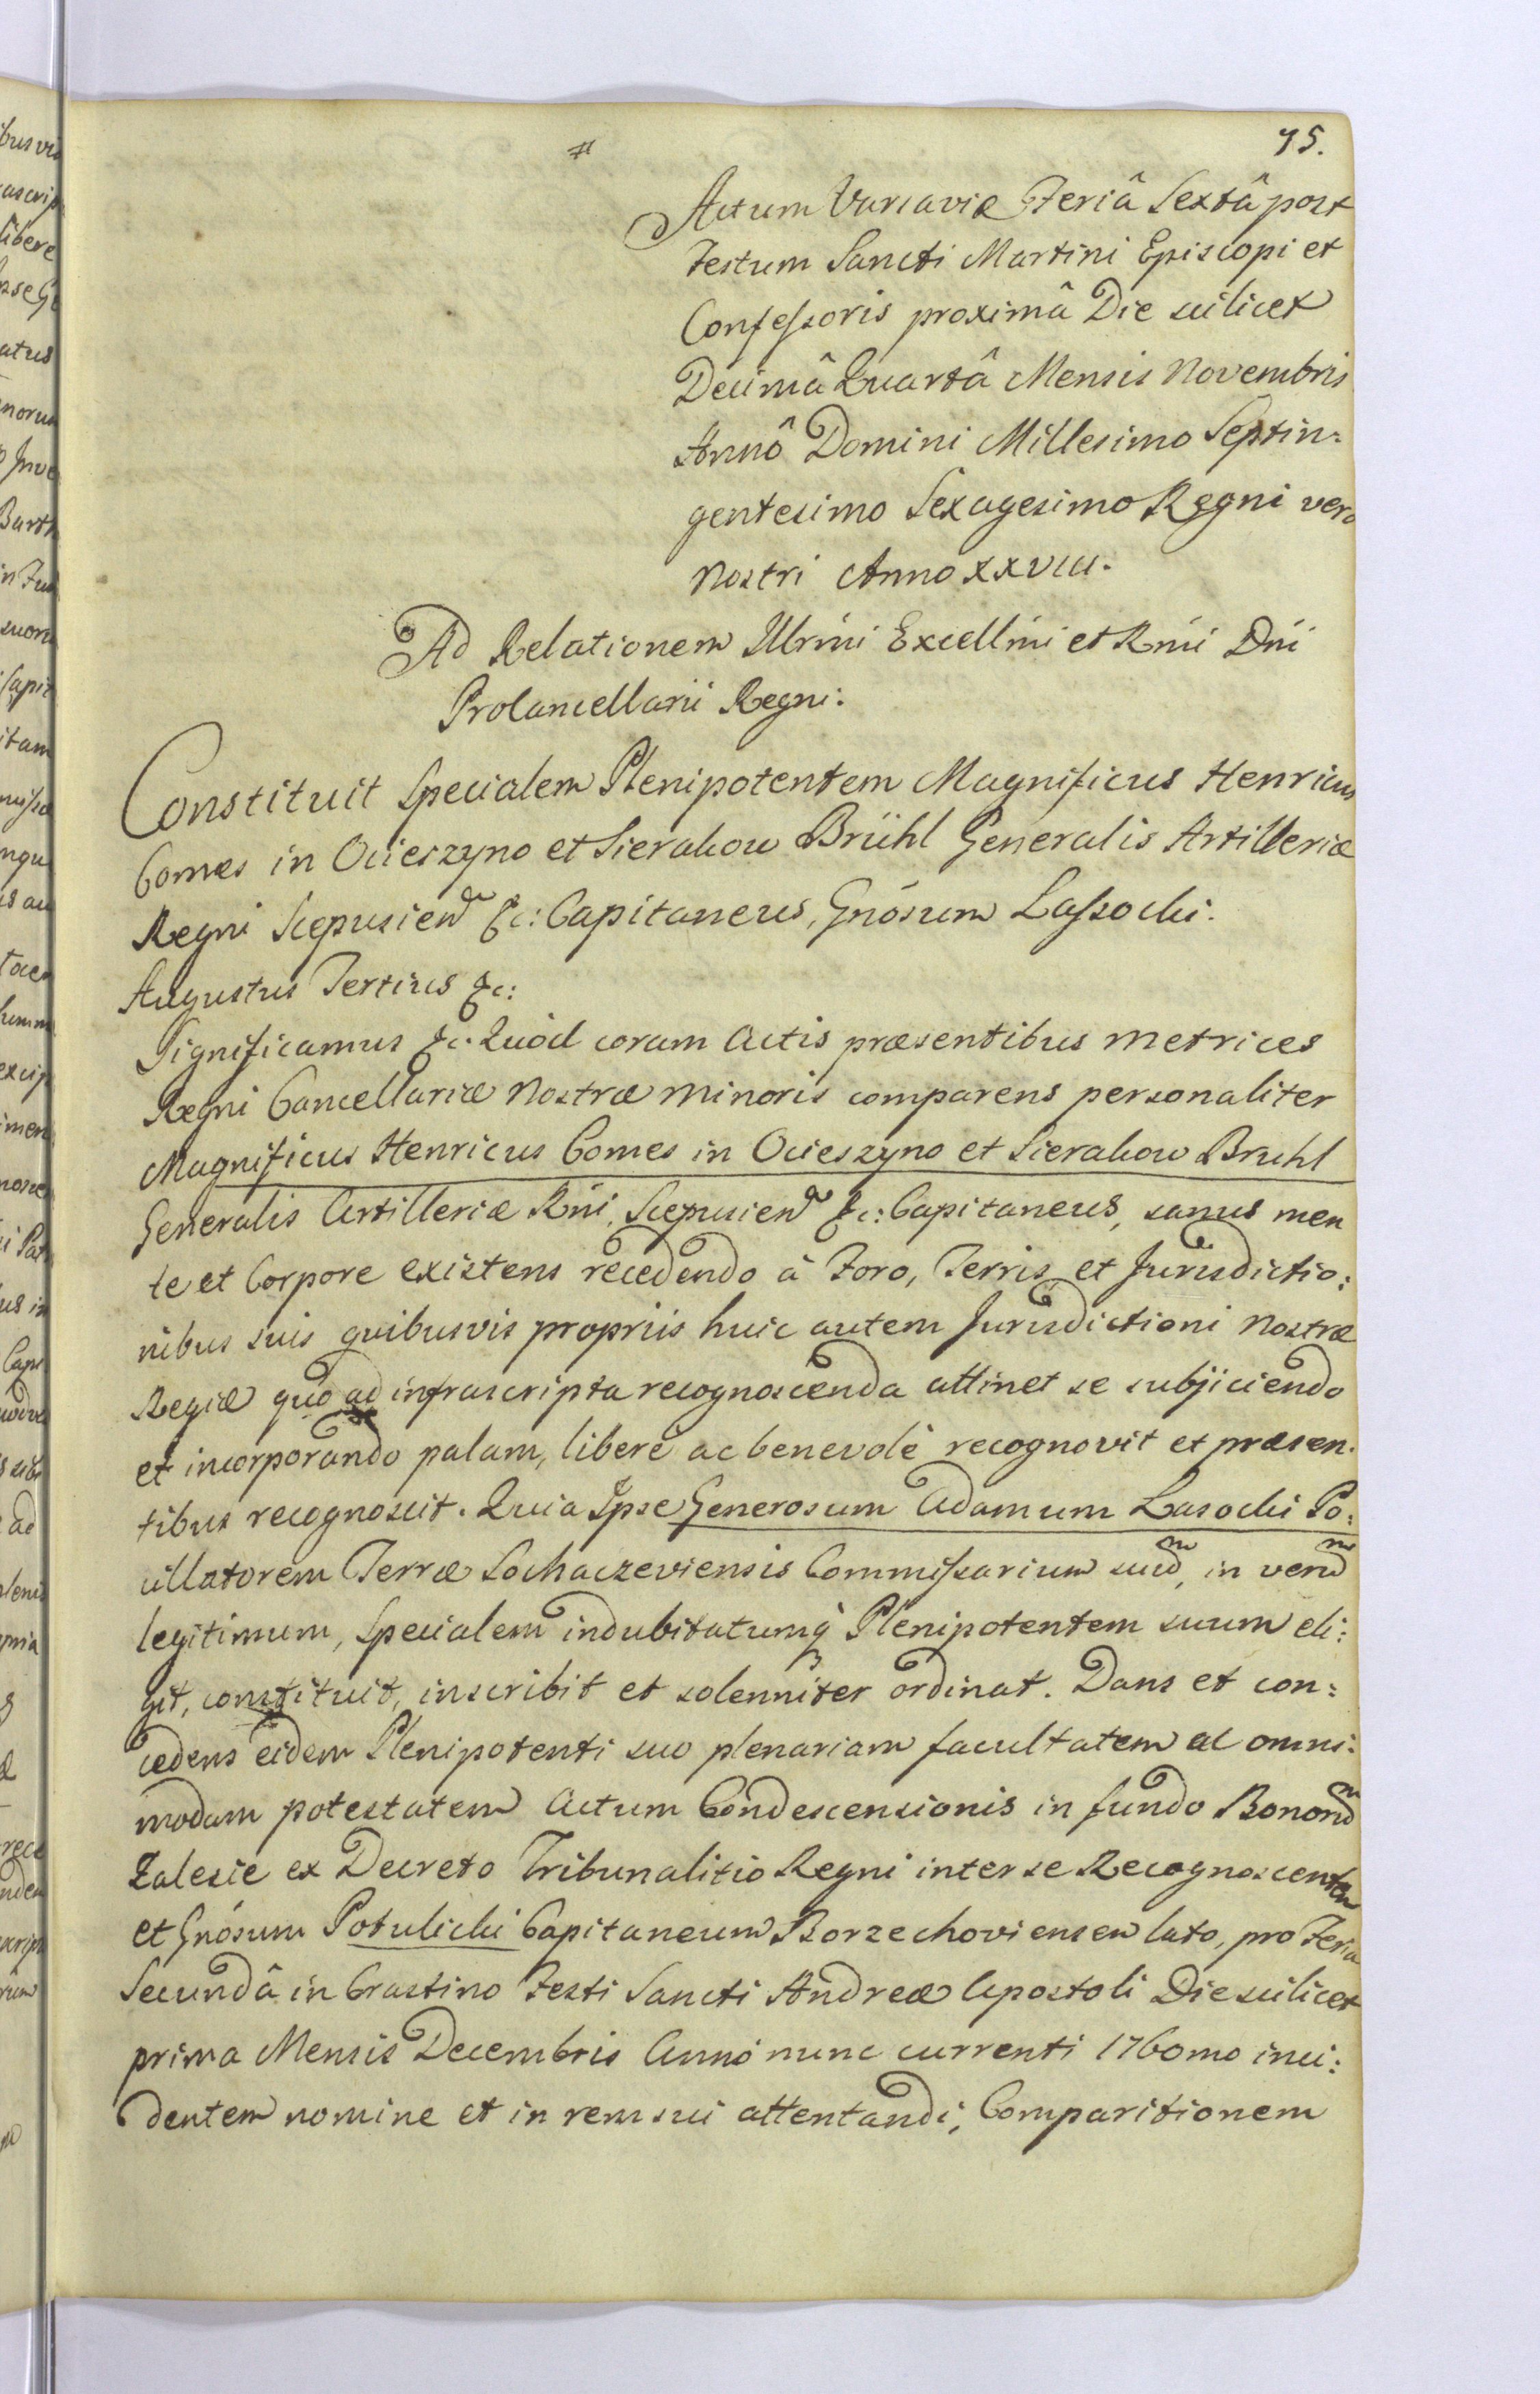 75.
Actum Varsaviæ Feriâ Sextâ post
Festum Sancti Martini Episcopi et
Confessoris proximâ Die scilicet
Decimâ Quartâ Mensis Novembris
Annô Domini Millesimo Septin:
gentesimo Sexagesimo Regni vero
Nostri Anno XXVIII.
Ad Relationem Illrmi Excellmi et Rmi Dni
Procancellarii Regni:
Constituit Specialem Plenipotentem Magnificus Henricus
Comes in Ocieszyno et Sierakow Brühl Generalis Artilleriæ
Regni Scepusien &c: Capitaneus, Gnosum Lassocki.
Augustus Tertius &c:
Significamus &c. Quòd coram Actis præsentibus Metrices
Regni Cancellariæ Nostræ Minoris comparens personaliter
Magnificus Henricus Comes in Ocieszyno et Sierakow Bruhl
Generalis Artilleriæ Rni, Scepusien &c: Capitaneus, sanus men
te et Corpore existens recedendo à Foro, Terris et Jurisdictio:
nibus suis quibusvis propriis huic autem Jurisdictioni Nostræ
Regiæ quo ad infrascripta recognoscenda attinet se subjiciendo
et incorporando palam, liberè ac benevolè recognovit et præsen:
tibus recognoscit. Quia Ipse Generosum Adamum Lasocki Po:
cillatorem Terræ Sochaczeviensis Commissarium suum, in verum
legitimum, Specialem indubitatumq Plenipotentem suum eli:
git, constituit, inscribit et solenniter ordinat. Dans et con:
cedens eidem Plenipotenti suo plenariam facultatem ac omni:
modam potestatem Actum Condescensionis in fundo Bonorum
Zalesie ex Decreto Tribunalitio Regni inter se Recognoscentem
et Gnosum Potulicki Capitaneum Borzechoviensem lato, pro Feria
Secundâ in Crastino Festi Sancti Andreæ Apostoli Die scilicet
prima Mensis Decembris Annô nunc currenti 1760mo inci:
dentem nomine et in rem sui attentandi, Comparitionem